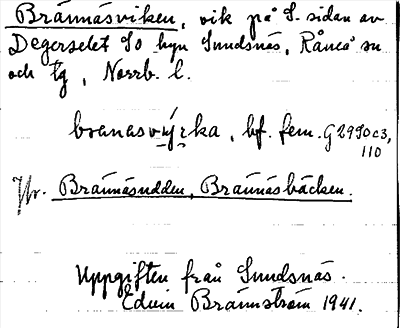 Brännäsviken, vik på S. sidan av
Degerselet So byn Sundsnäs, Råneå sn
och tg, Norrb. l.
branasvýrka, bf. fem. G2990c3,
110
Jfr. Brännäsudden, Brännäsbäcken.
Uppgiften från Sundsnäs.
Edvin Brännström 1941.